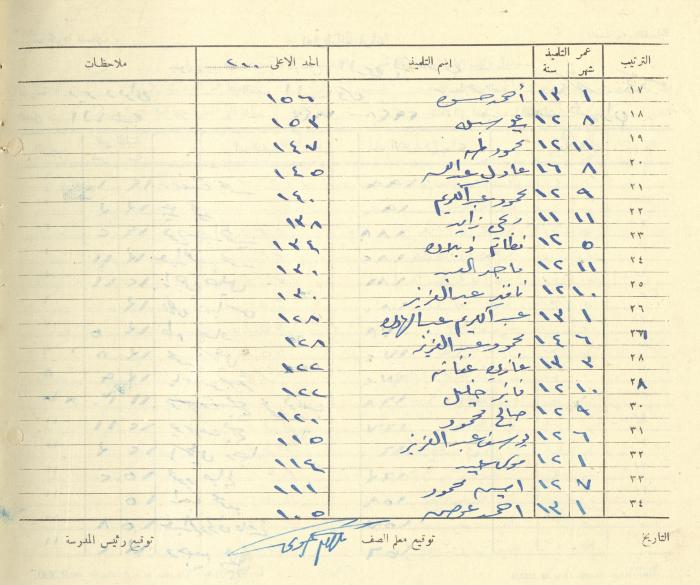 الترتيب عمر التلميذ اسم التلميذ الحد الاعلى ٢٠٠ ملاحظات
شهر سنة
١٧ ١ ١٣ أحمد حسونه ١٥٦
١٨ ٨ ١٢ ١٥٣
١٩ ١١ ١٢ محمود طه ١٤٧
٢٠ ٨ ١٦ عادل عبدالله ١٤٥
٢١ ٩ ١٢ محمود عبدالكريم ١٤٠
٢٢ ١١ ١١ زايد ١٣٨
٢٣ ٥ ١٢ نظام ١٣٤
٢٤ ١١ ١٢ ماجد السيد ١٣٠
٢٥ ١٠ ١٢ نافذ عبدالعزيز ١٣٠
٢٦ ١ ١٣ عبدالكريم عبدالهادي ١٢٨
٢٧ ٦ ١٤ محمود عبدالعزيز ١٢٨
٢٨ ٣ ١٣ غازي ١٢٢
٢٨ ١٠ ١٢ فايز خليل ١٢٢
٣٠ ٩ ١٢ صالح محمود ١٢٠
٣١ ٦ ١٢ يوسف عبدالعزيز ١١٥
٣٢ ١ ١٢ موسى عيد ١١٤
٣٣ ٧ ١٢ امين محمود ١١١
٣٤ ١ ١٣ احمد عوض ١٠٥
التاريخ توقيع معلم الصف توقيع رئيس المدرسة